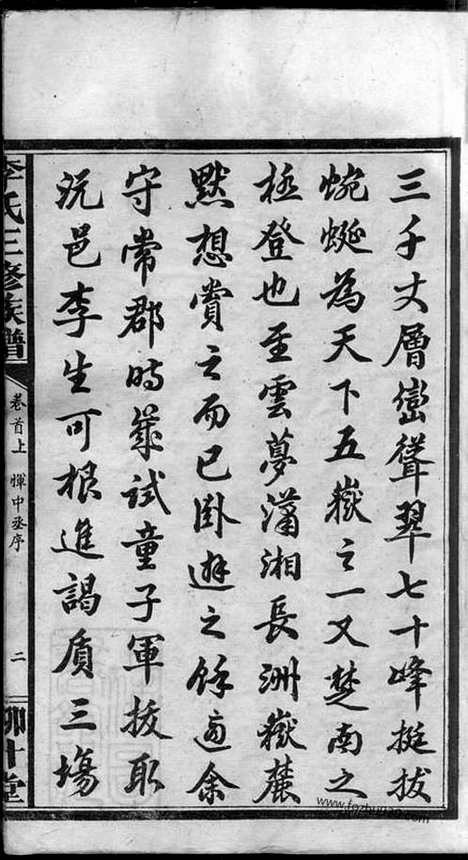 三千丈層巒聳翠七十峰挺拔
蜿蜒為天下五嶽之一又楚南之
極登也至雲夢瀟湘長洲嶽麓
默想賞之而已卧遊之餘適余
守常郡時歲試童子軍拔取
沅邑李生可根進謁質三塲
李氏三修族譜
卷首上 惲中丞序
二
柳叶堂
www.fozhu920.com